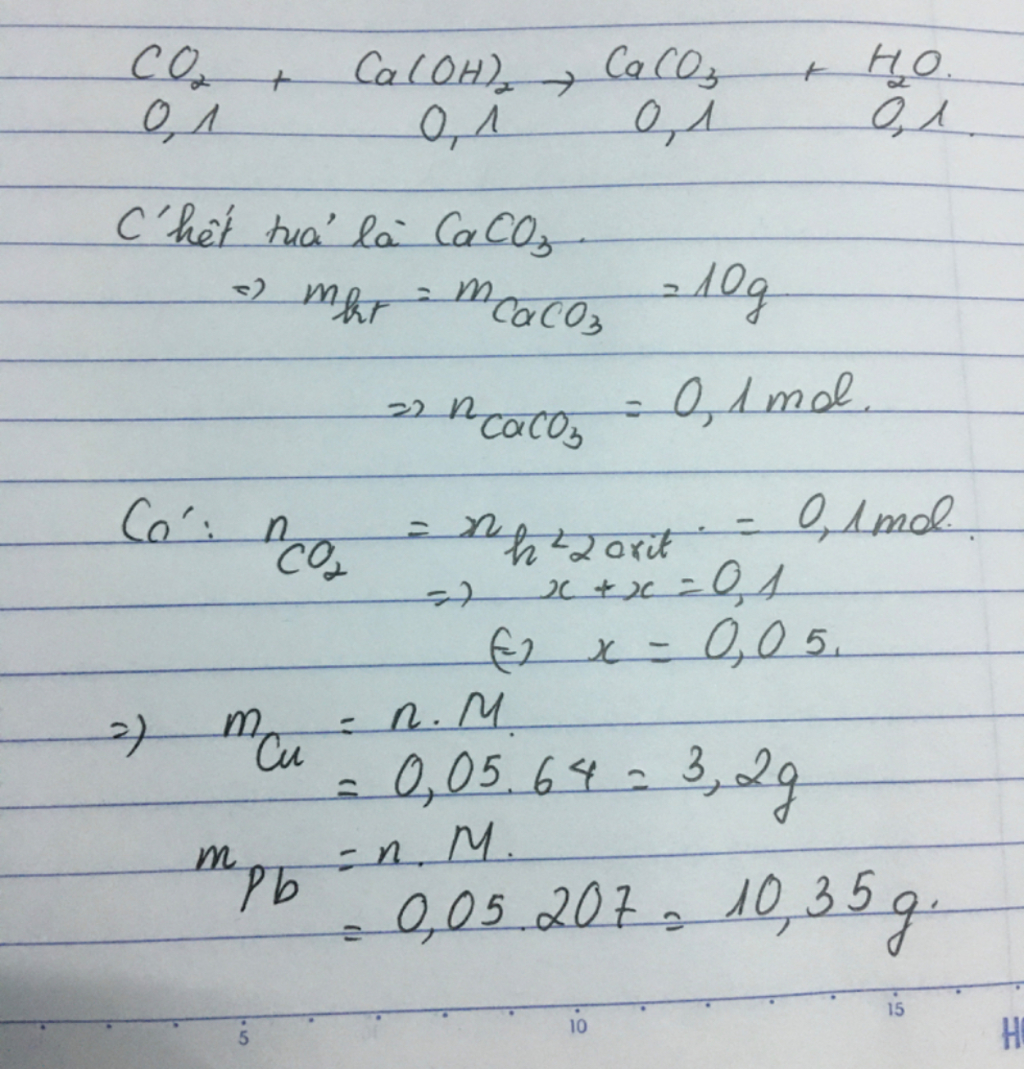 CO₂ + Ca(OH)₂ → CaCO₃ + H₂O.
0,1 0,1 0,1 0,1
C' kết tuả là CaCO₃.
=> m_kt = m_CaCO₃ = 10g
=> n_CaCO₃ = 0,1 mol.
Có: n_CO₂ = n_h²2 oxit. = 0,1 mol.
=> x + x = 0,1
(=) x = 0,05.
=) m_Cu = n. M.
= 0,05. 64 = 3,2g
m_Pb = n. M.
= 0,05. 207 = 10,35 g.
5 10 15